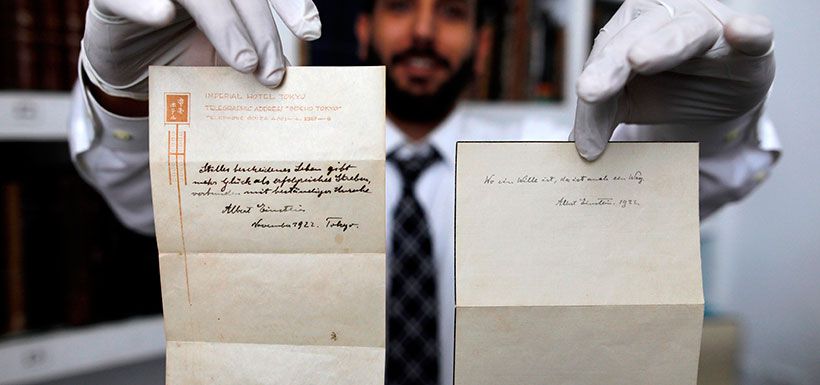 帝国ホテル
IMPERIAL HOTEL TOKYO
TELEGRAPHIC ADDRESS
Stilles bescheidenes Leben gibt
mehr Glück als erfolgreiches Streben,
verbunden mit beständiger Unruhe.
Albert Einstein
November 1922. Tokyo.
Wo ein Wille ist, da ist auch ein Weg.
Albert Einstein. 1922.